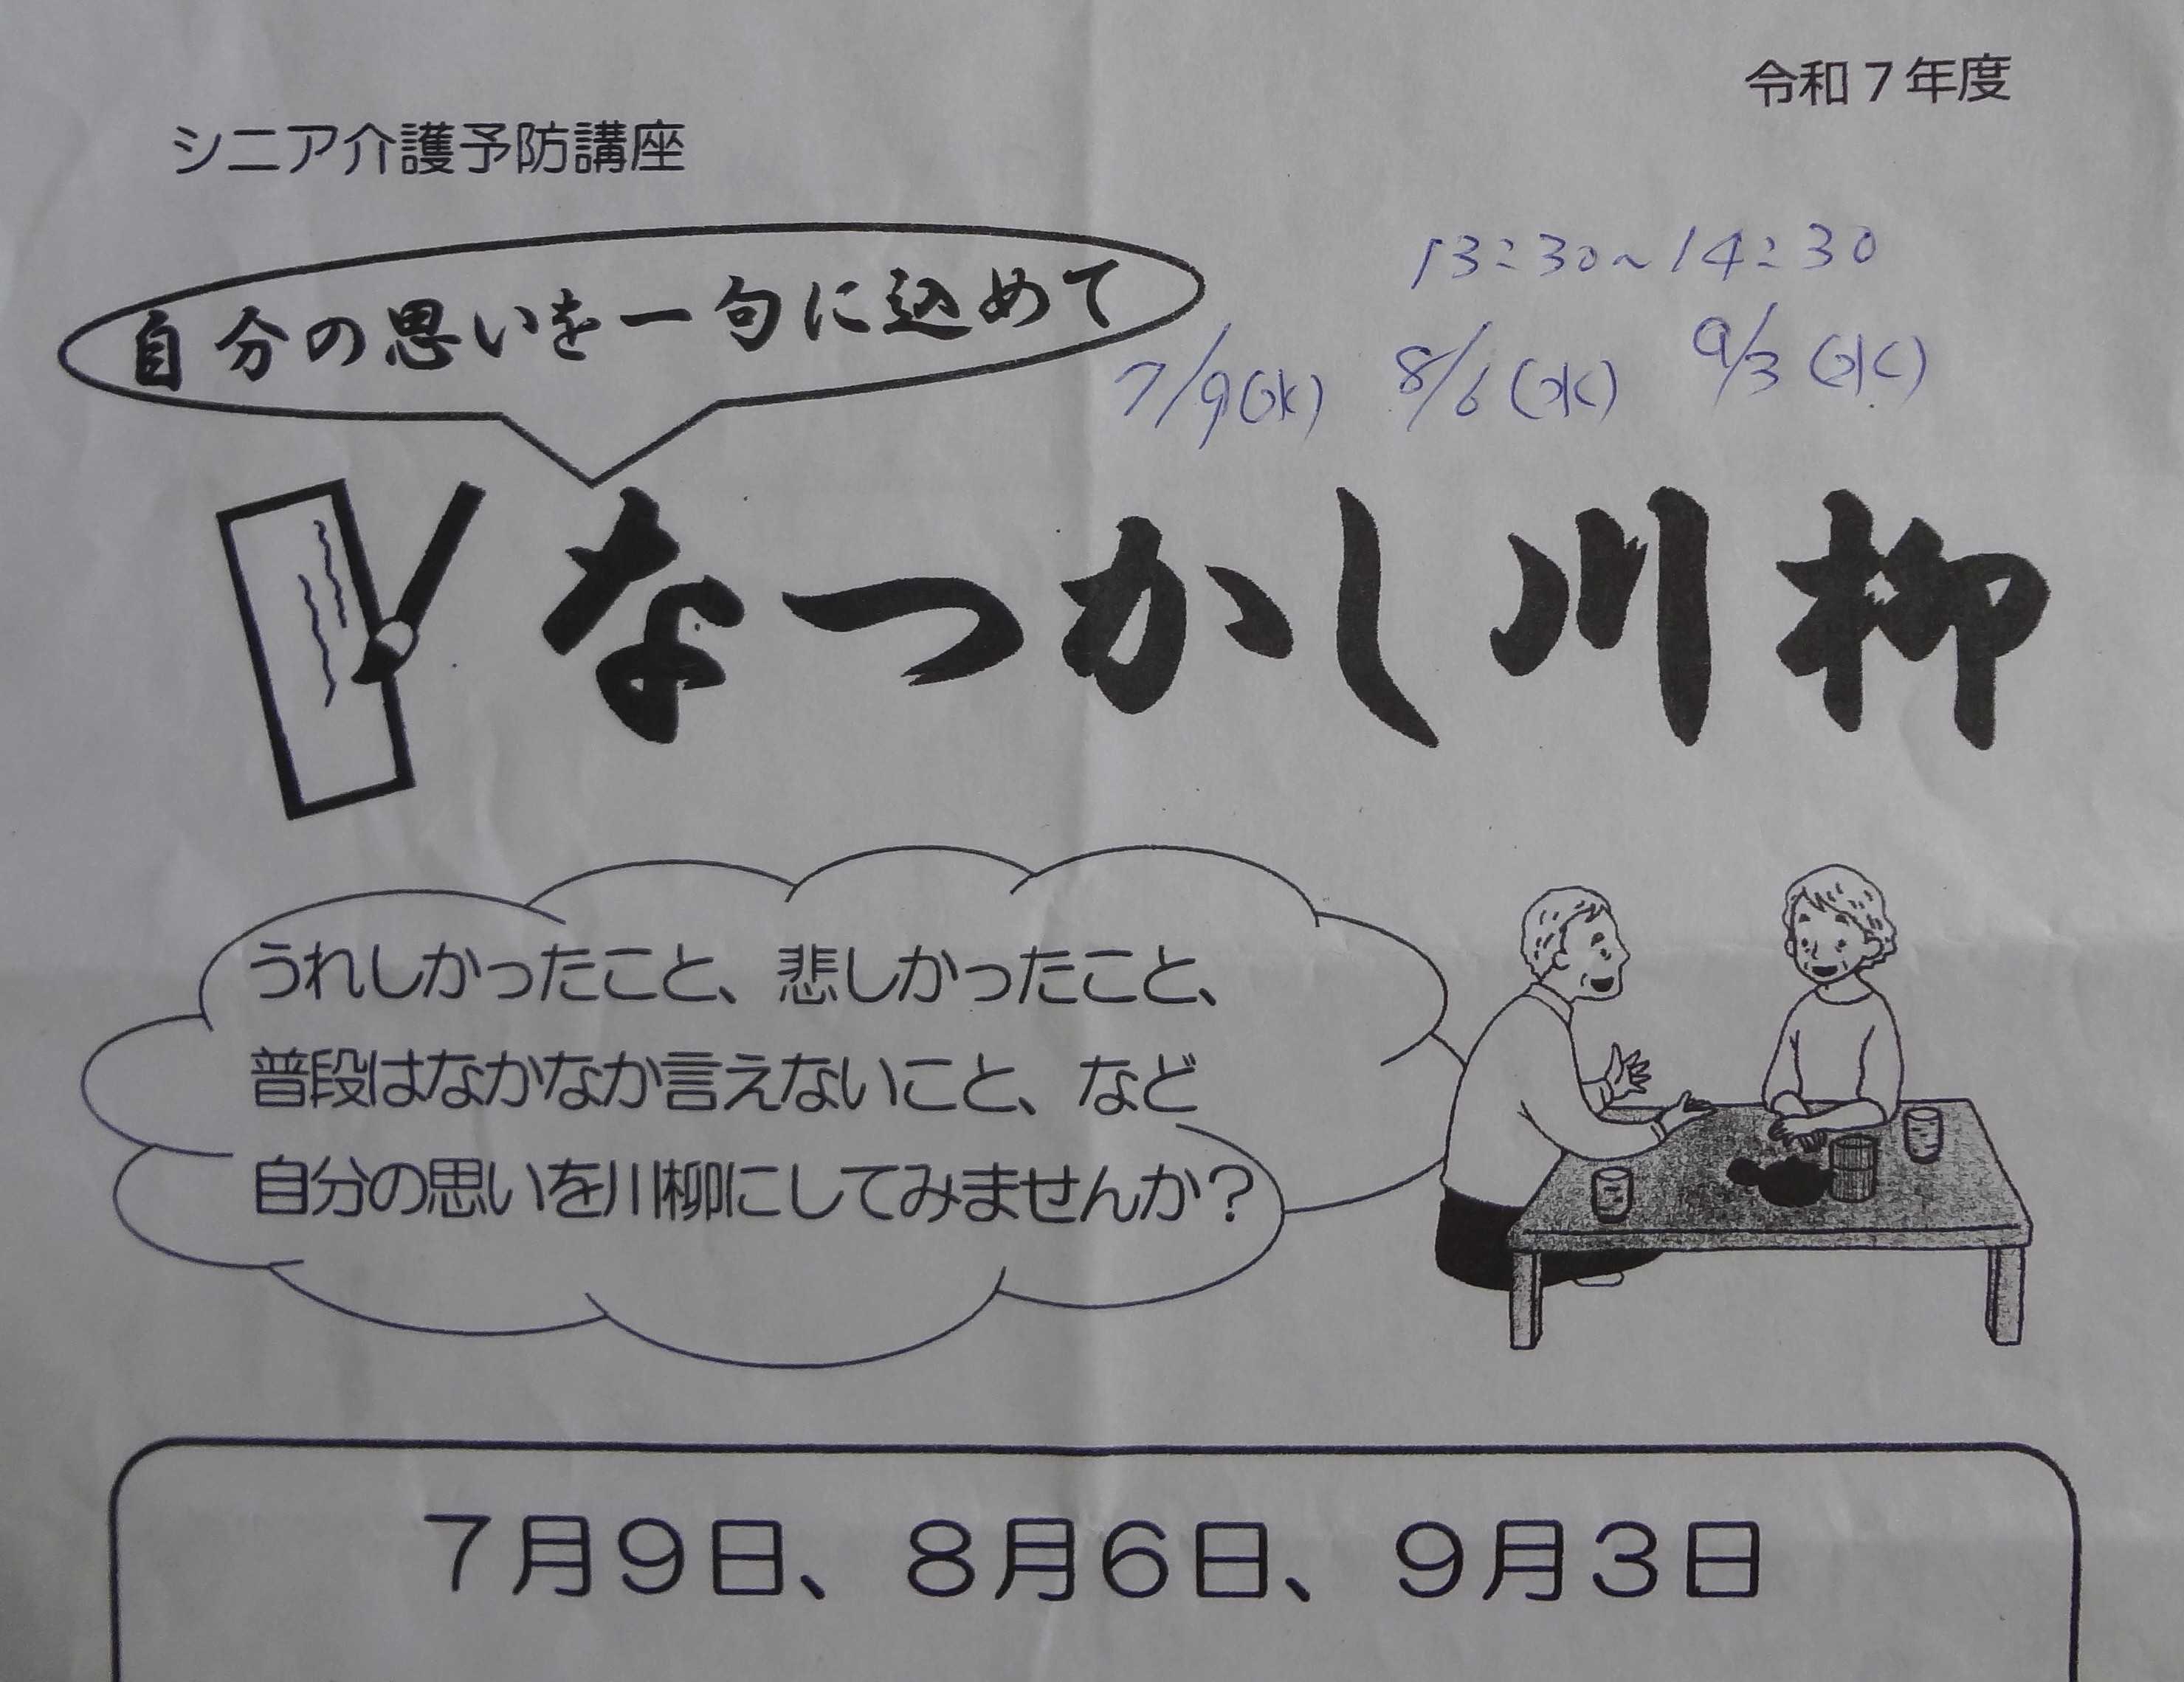 令和７年度
シニア介護予防講座
13:30~14:30
自分の思いを一句に込めて
7/9(水) 8/6(水) 9/3(水)
なつかし川柳
うれしかったこと、悲しかったこと、
普段はなかなか言えないこと、など
自分の思いを川柳にしてみませんか？
７月９日、８月６日、９月３日